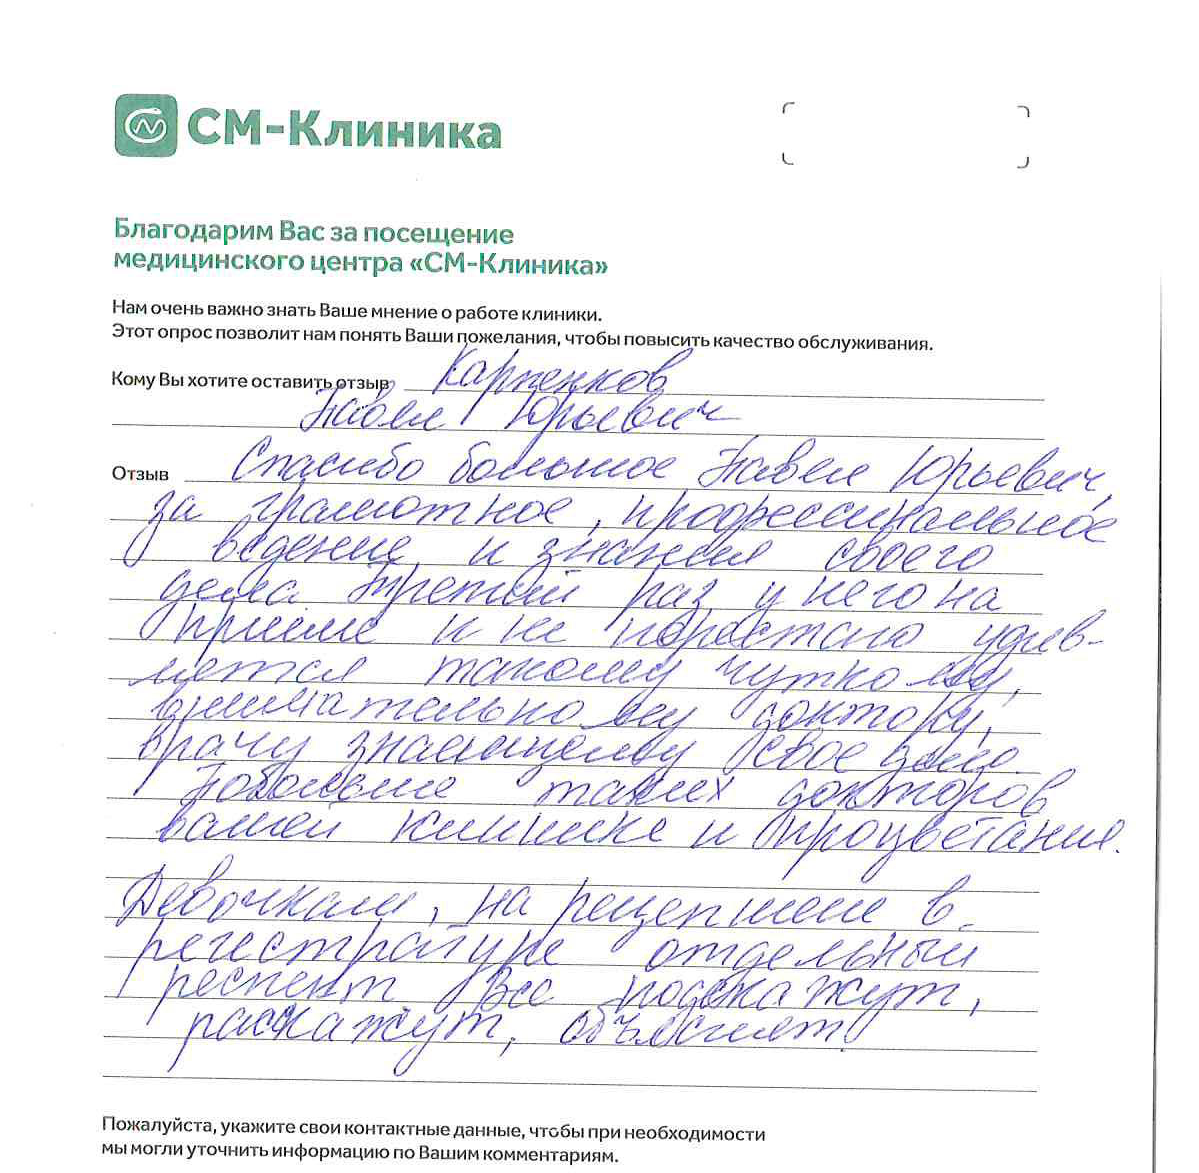 СМ-Клиника
Благодарим Вас за посещение
медицинского центра «СМ-Клиника»
Нам очень важно знать Ваше мнение о работе клиники.
Этот опрос позволит нам понять Ваши пожелания, чтобы повысить качество обслуживания.
Кому Вы хотите оставить отзыв Карпенков
Павел Юрьевич
Отзыв Спасибо большое Павел Юрьевич,
за грамотное, профессиональное
ведение и знания своего
дела третий раз у него на
приеме и не перестаю удив-
ляется такому чуткому,
внимательному доктору,
врачу знающему свое дело.
Побольше таких докторов
вашей клинике и процветания.
Девочкам, на рецепшене в
регистратуре отдельный
респект. Все подскажут,
расскажут, объяснят.
Пожалуйста, укажите свои контактные данные, чтобы при необходимости
мы могли уточнить информацию по Вашим комментариям.